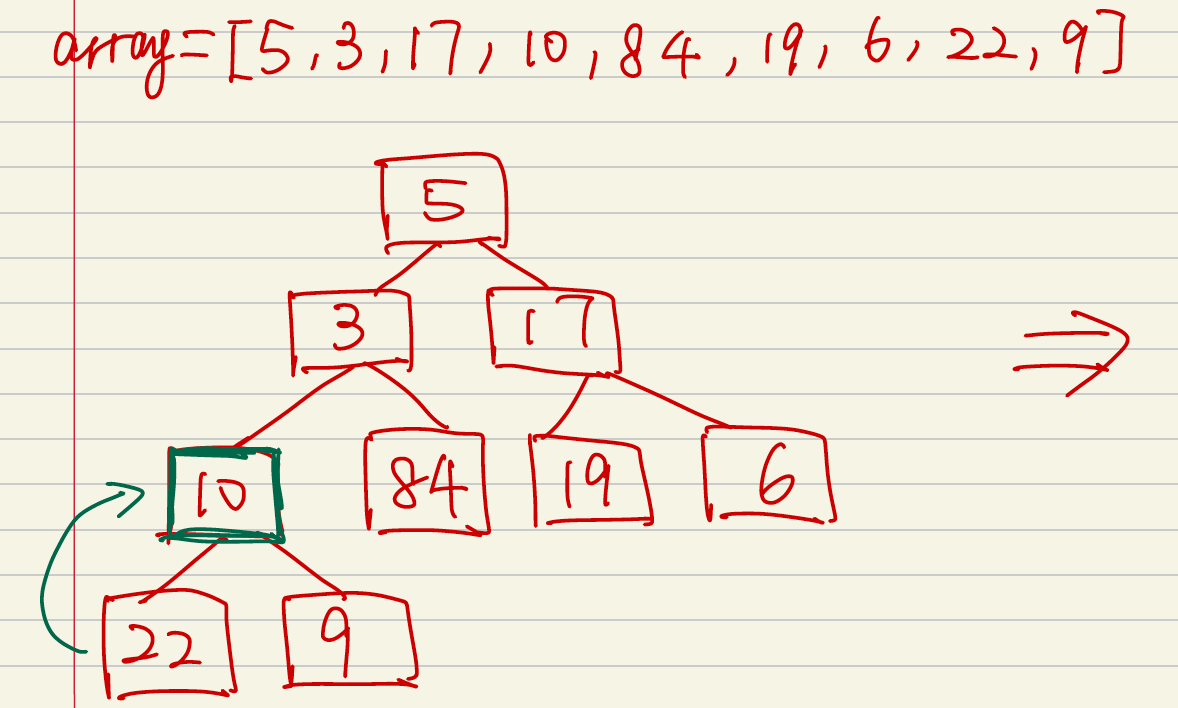 array=[5,3,17,10,84,19,6,22,9]
5
3 17
10 84 19 6
22 9